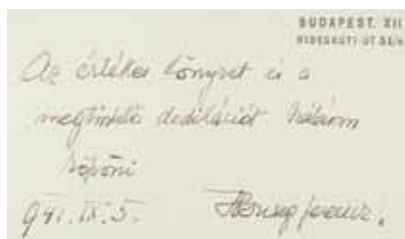 BUDAPEST. XII
HIDEGKUTI-UT
Az értékes könyvet és a
megtisztelő dedikációt hálásan
köszöni
941. IX. 5. Herczeg Ferenc.